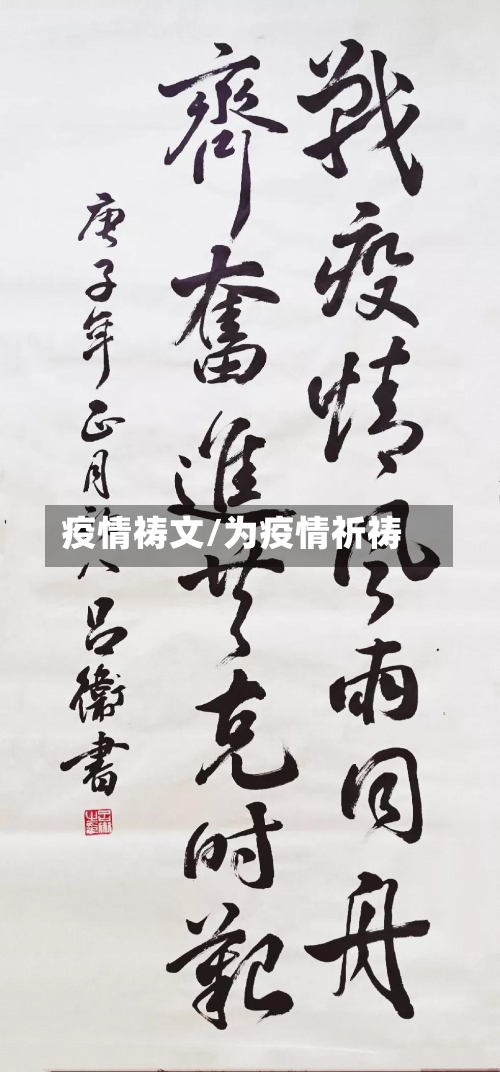 戰疫情風雨同舟
齊奮進共克时艱
庚子年正月
吕衛書
疫情祷文/为疫情祈祷